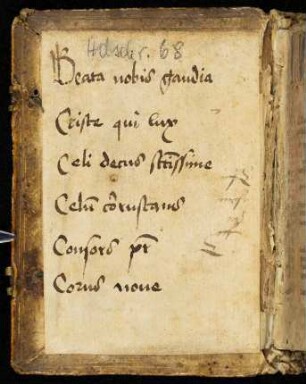 Hdschr. 68
Beata nobis gaudia
Criste qui lux
Celi decus sctissime
Celū corustans
Consors pr̄
Corus noue